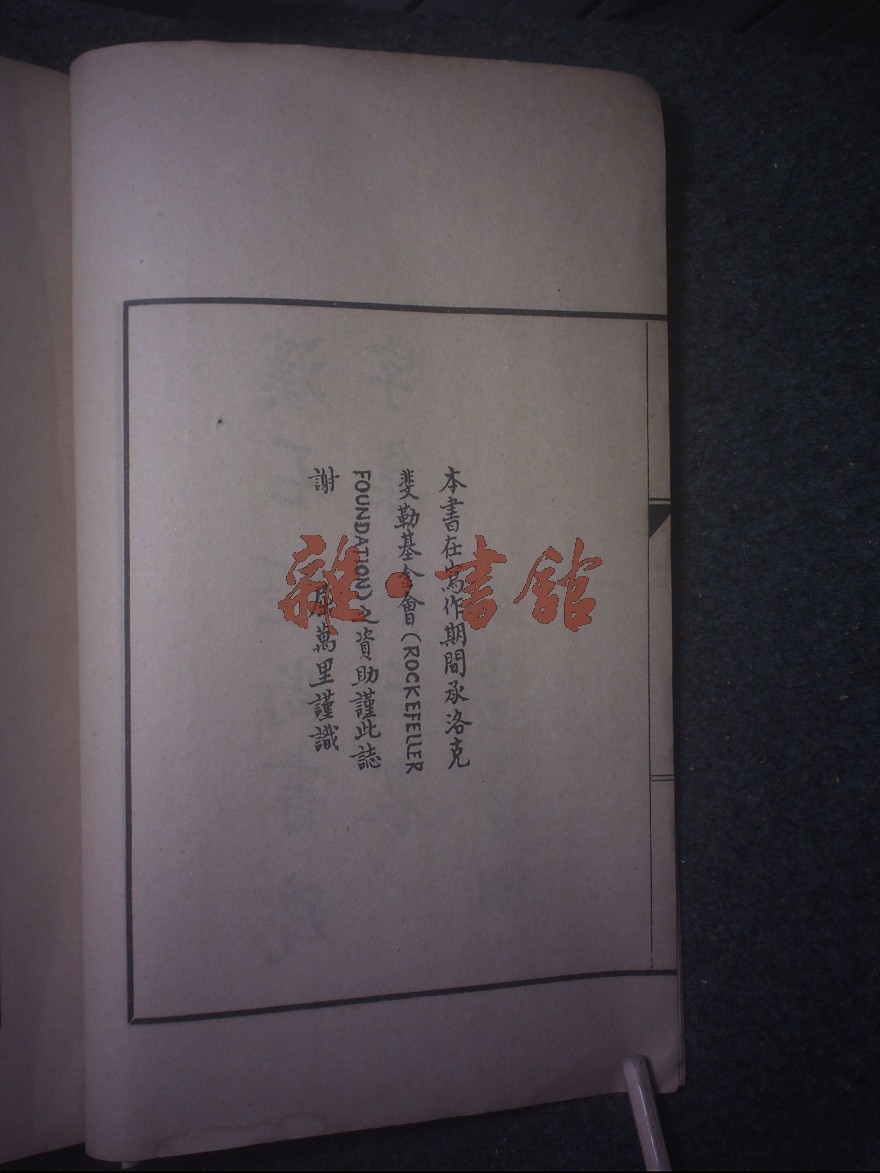 本書在寫作期間承洛克
斐勒基金會(ROCKEFELLER
FOUNDATION)之資助謹此誌
謝 屈萬里謹識
雜·書館